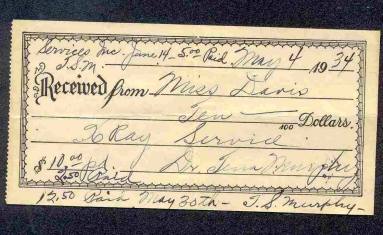 Services Inc. June 14 - 5.00 Paid May 4 1934
T.S.M.
Received from Miss Davis
Ten 100 Dollars.
X Ray Service
$10.00 pd. Dr. Murphy
2.50 Paid
12.50 Paid May 30th - T.S. Murphy -